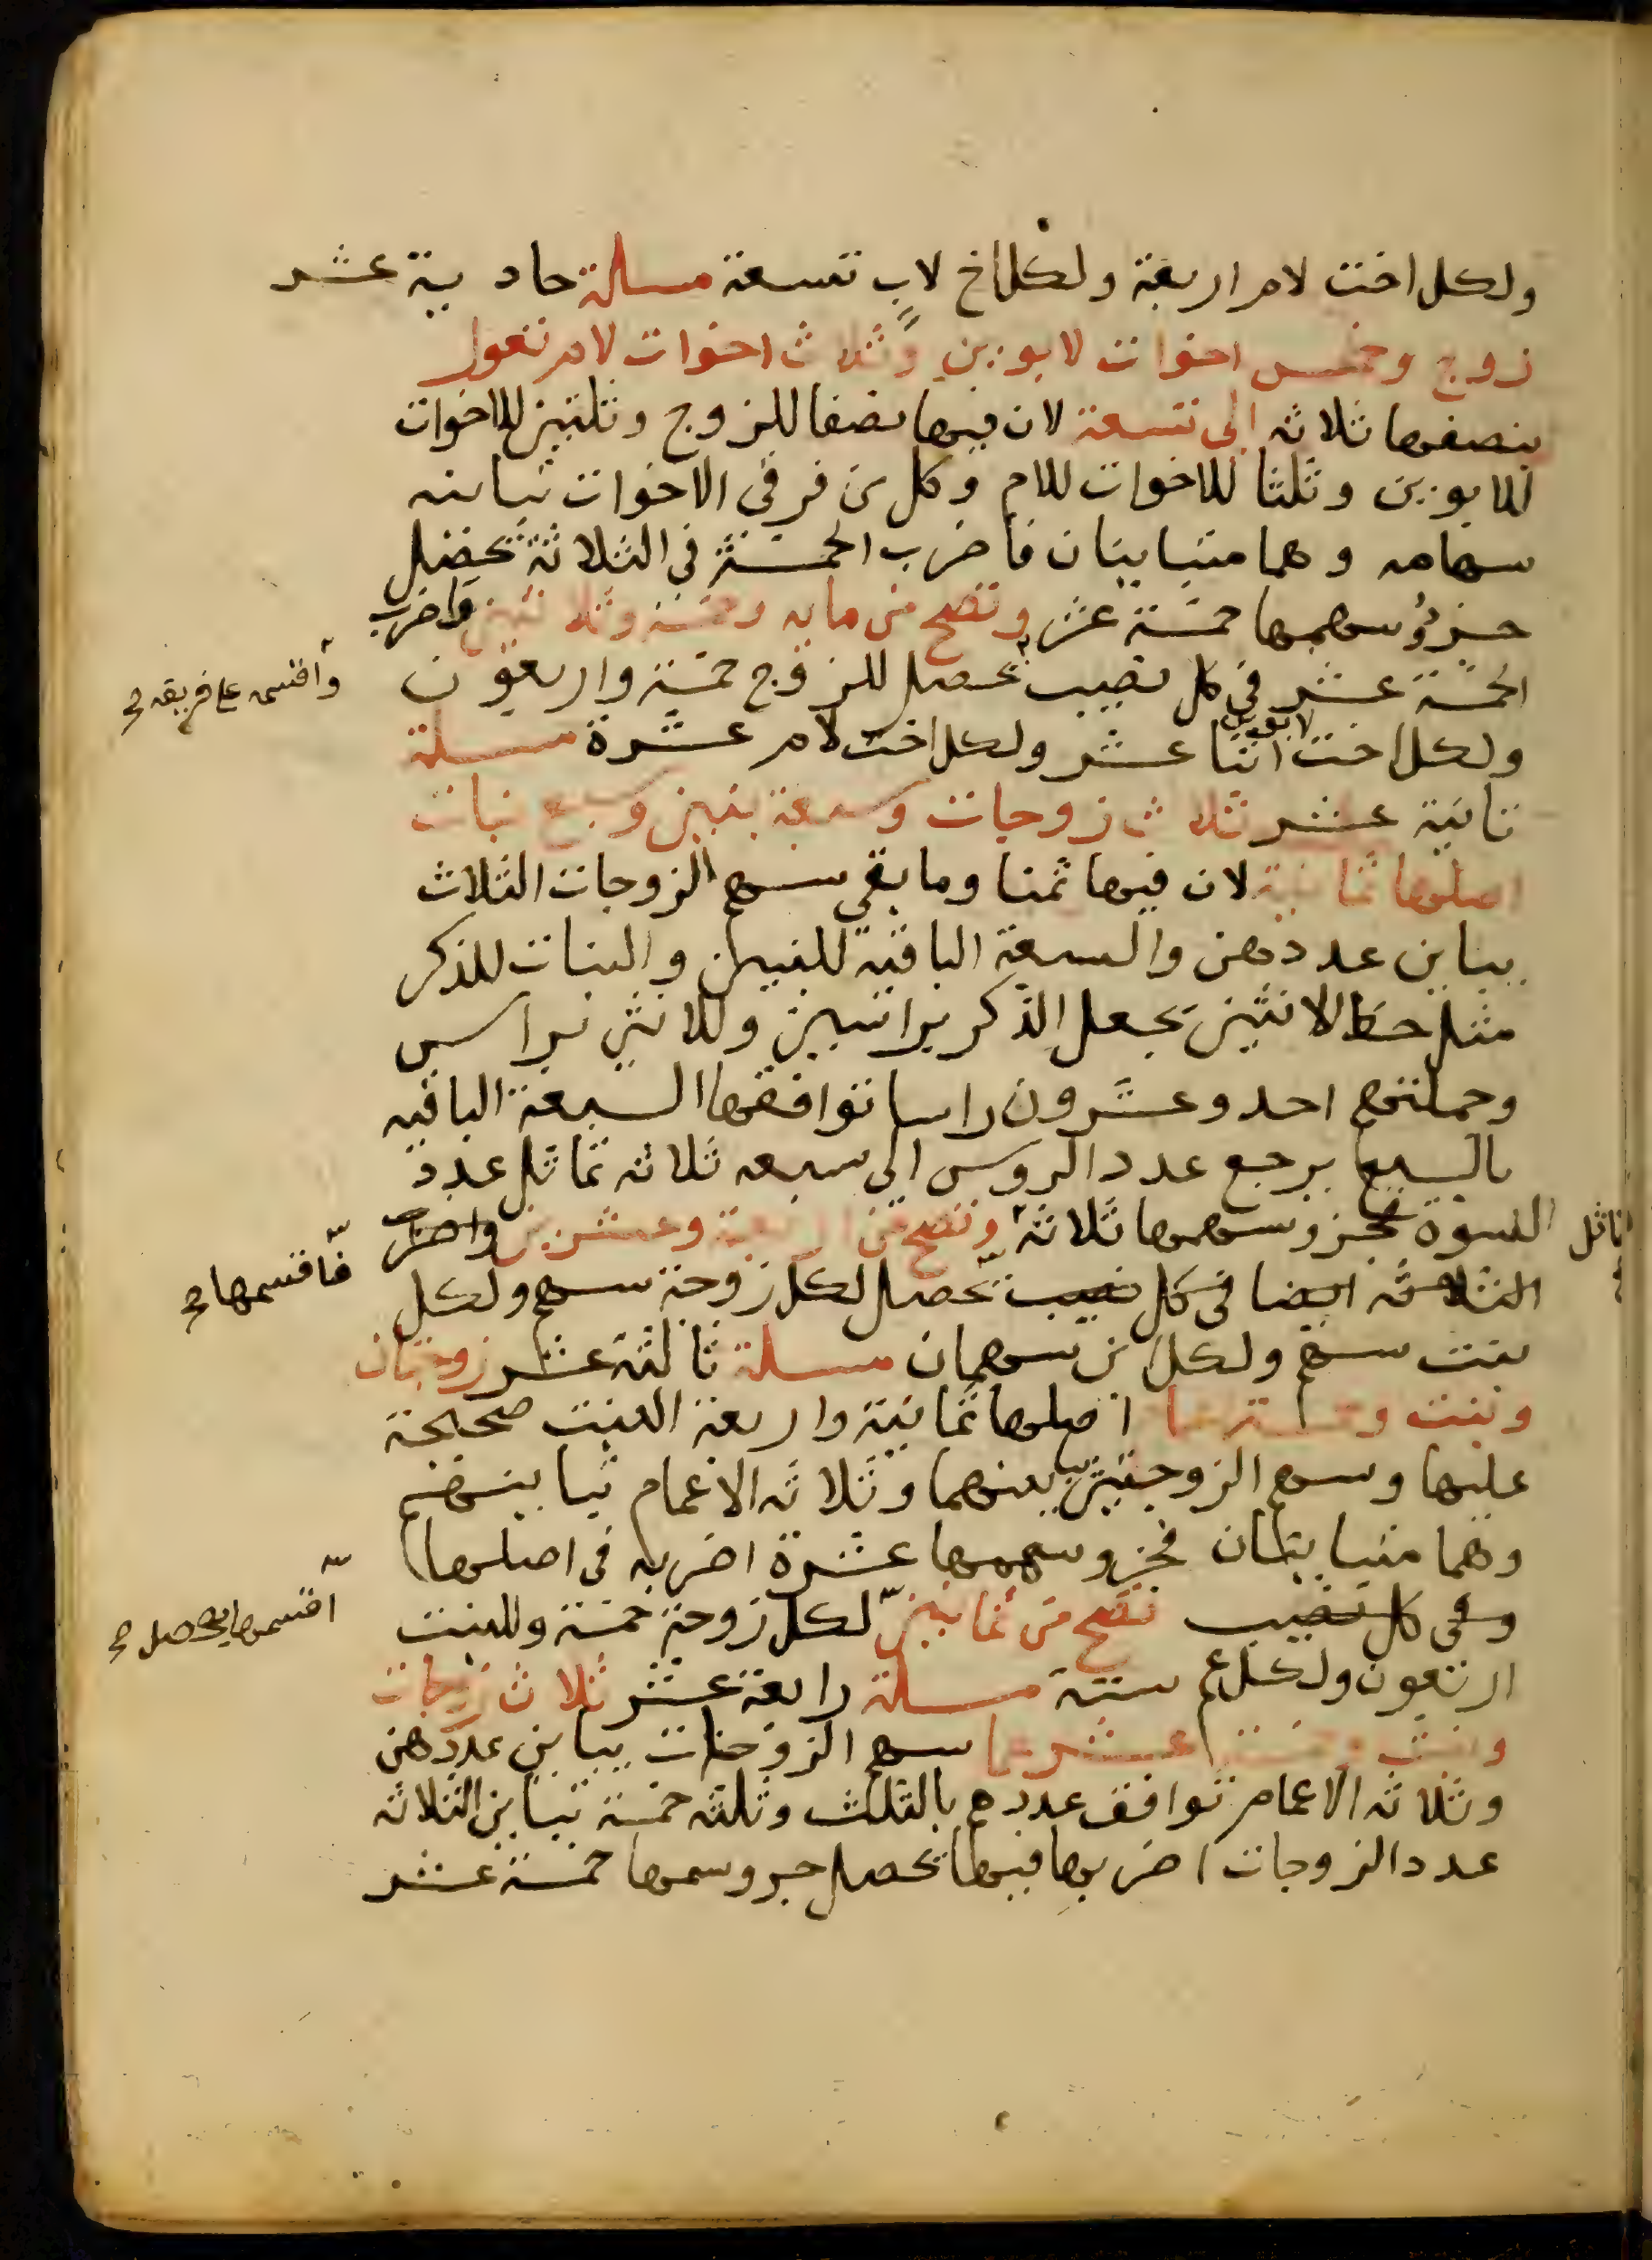 ولكل اخت لام اربعة ولكل اخ لاب تسعة مسلة حادية عشر
زوج وخمس اخوات لابوين وثلاث اخوات لام تعول
بنصفها ثلاثه الى تسعة لان فيها نصفا للزوج وثلثين للاخوات
للابوين وثلثا للاخوات للام وكل من فرقي الاخوات تباينه
سهامه وهما متباينان فاضرب الخمسة في الثلاثة تحصل
جزؤ سهمها خمسة عشر وتصح من مايه وخمسة وثلاثين واضرب
الخمسة عشر في كل نصيب يحصل للزوج خمسة واربعون
وأقسمه على فريقه
ولكل اخت لابوين اثنا عشر ولكل اخت لام عشرة مسلة
ثانية عشر ثلاث زوجات وسبعة بنين وسبع بنات
اصلها ثمانية لان فيها ثمنا وما بقي سهم الزوجات الثلاث
يباين عددهن والسبعة الباقية للبنين والبنات للذكر
مثل حظ الانثيين يجعل الذكر براسين وللانثى براس
وجملتهم احد وعشرون راسا توافقها السبعة الباقيه
بالسبع يرجع عدد الروس الى سبعه ثلاثه تماثل عدد
النسوة فجزو سهمها ثلاثة وتصح من اربعة وعشرين واضرب
الثلاثه ايضا في كل نصيب تحصل لكل زوجة سهم ولكل
فأقسمها
بنت سهم ولكل ابن سهمان مسلة ثالثة عشر زوجتان
وبنت وخمسة اعمام اصلها ثمانية واربعة البنت صحيحة
عليها وسهم الزوجتين يباينهما وثلاثه الاعمام تباينهم
وهما متباينان فجزو سهمها عشرة اضربه في اصلها
وفي كل نصيب تصح من ثمانين لكل زوجة خمسة وللبنت
أقسمها يحصل
اربعون ولكل عم ستة مسلة رابعة عشر ثلاث زوجات
وبنت وخمسة عشر عما سهم الزوجات يباين عددهن
وثلاثه الاعمام توافق عددهم بالثلث وثلثه خمسة تباين الثلاثه
عدد الزوجات اضربها فيها يحصل جزو سهمها خمسة عشر